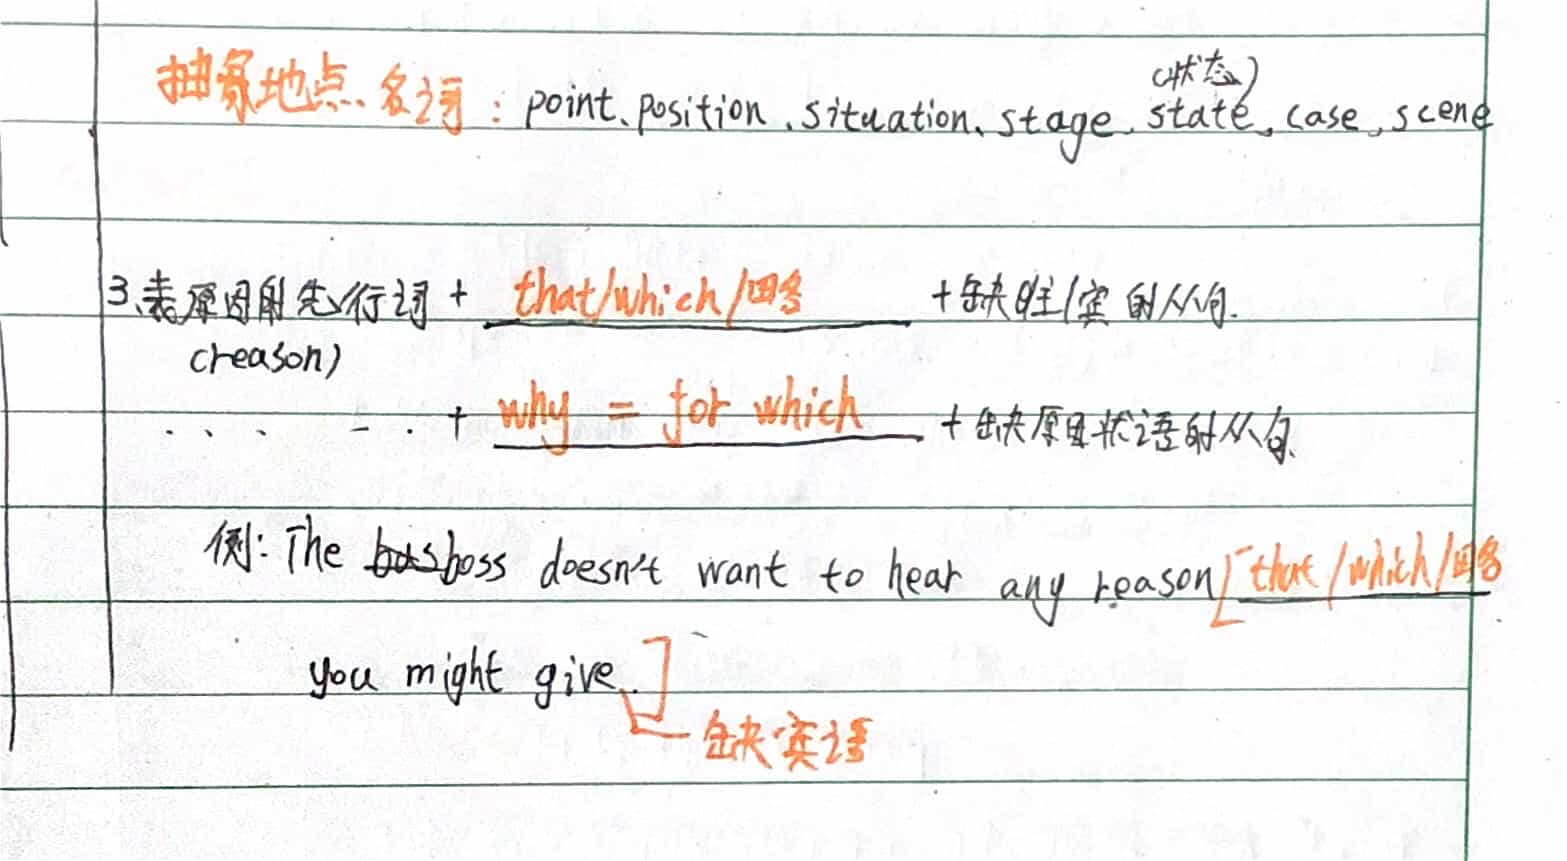 (状态)
抽象地点名词: point、position、situation、stage、state、case、scene
3.表原因的先行词 + that/which/ +缺主/宾的从句.
(reason)
+ why = for which +缺原因状语的从句.
例: The boss doesn't want to hear any reason [that/which/
you might give.]
缺宾语